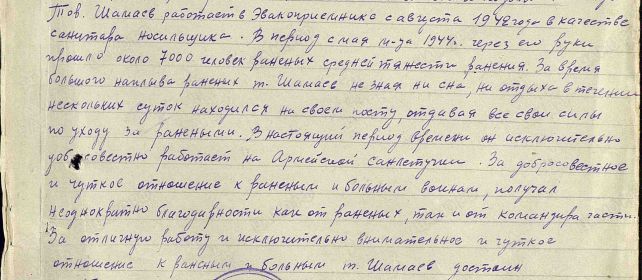 Тов. Шамаев работает в Эвакоприемника с августа 1942 года в качестве
санитара носильщика. В период с мая м-ца 1944г. через его руки
прошло около 7000 человек раненых средней тяжести ранения. За время
большого наплыва раненых т. Шамаев не зная ни сна, ни отдыха в течении
нескольких суток находился на своем посту, отдавая все свои силы
по уходу за ранеными. В настоящий период времени он исключительно
добросовестно работает на Армейской санлетучки. За добросовестное
и чуткое отношение к раненым и больным воинам, получал
неоднократно благодарности как от раненых, так и от командира части.
За отличную работу и исключительно внимательное и чуткое
отношение к раненым и больным т. Шамаев достоин